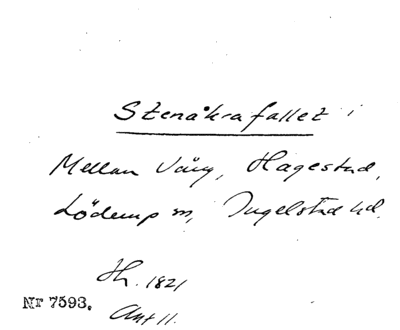 Stenåkrafallet i
Mellan Vång, Hagestad,
Löderup sn, Ingelstad hd.
Hh. 1821
Nr 7593.
Akt 11.